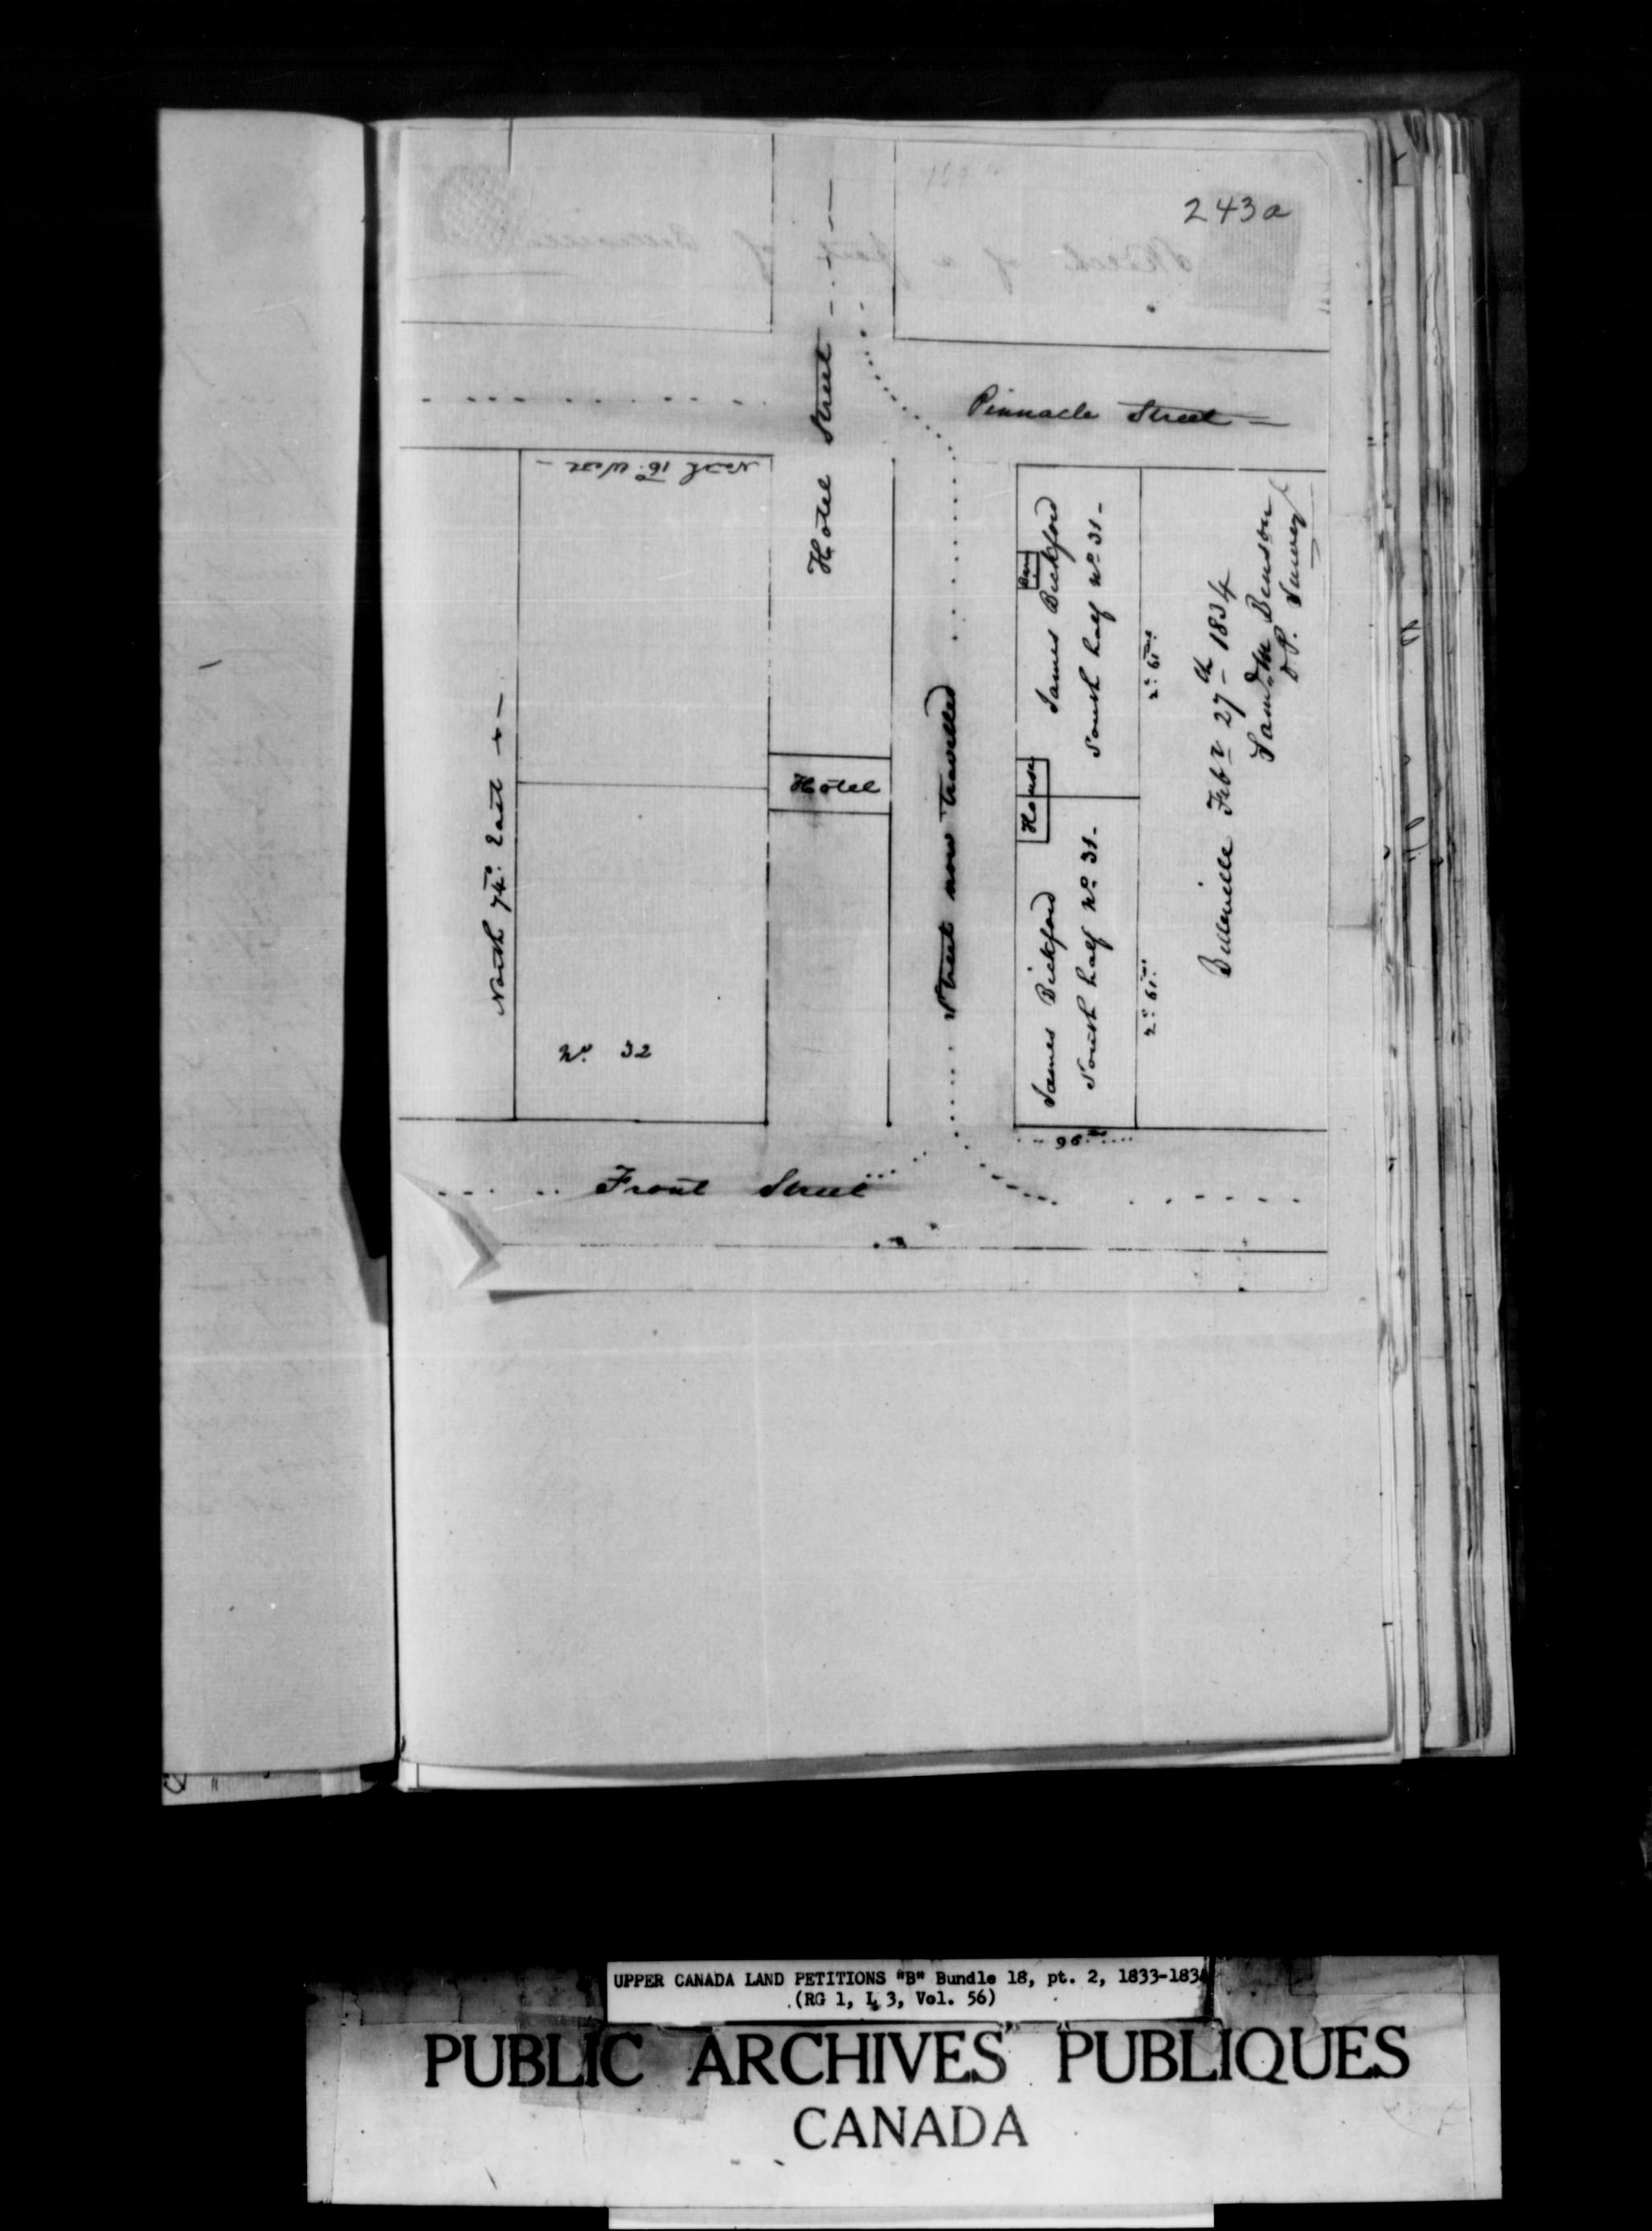 243a
Hotel Street
Pinnacle Street
North 16° West
North 74° East
Hotel
Street now travelled
No. 32
House
James Bickford
South half No. 31
James Bickford
South half No. 31
Belleville Feby 27th 1834
Saml. M Benson
D.P. Survey
Front Street
UPPER CANADA LAND PETITIONS "B" Bundle 18, pt. 2, 1833-183
(RG 1, L 3, Vol. 56)
PUBLIC ARCHIVES PUBLIQUES
CANADA